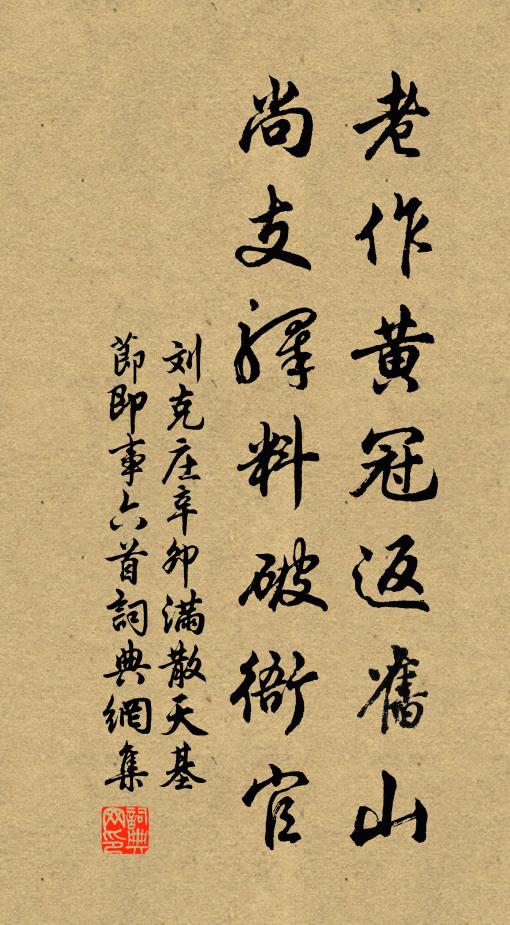 老作黄冠返舊山
尚支驛料破衙官
刘克庄辛卯满散天基
節即事六首詞典網集
詞典網印